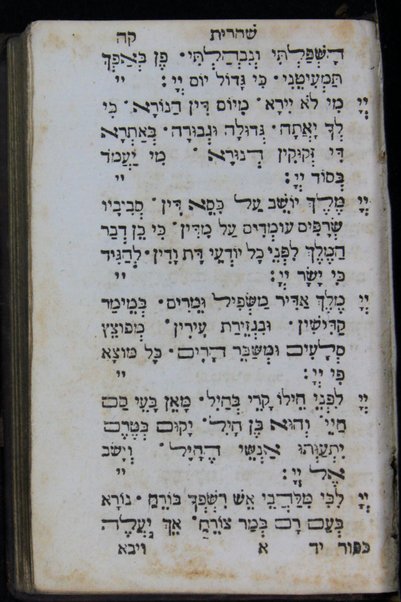 שחרית קה
הָשְׁפַּלְתִּי וְנִבְהַלְתִּי. פֶּן בְּאַפְּךָ
תַּמְעִיטֵנִי. כִּי גָדוֹל יוֹם יְיָ: יי
יְיָ מִי לֹא יִירָא. מִיּוֹם דִּין הַנּוֹרָא. כִּי
לְךָ יָאֲתָה. גְּדוּלָּה וּגְבוּרָה. בְּאַתְרָא
דִּי זְקוּקִין דְּנוּרָא מִי יַעֲמוֹד
בְּסוֹד יְיָ: יי
יְיָ מֶלֶךְ יוֹשֵׁב עַל כִּסֵּא דִין. סְבִיבָיו
שְׂרָפִים עוֹמְדִים עַל מַדִּין. כִּי כֵן דְּבַר
הַמֶּלֶךְ לִפְנֵי כָּל יוֹדְעֵי דָת וָדִין. לְהַגִּיד
כִּי יָשָׁר יְיָ: יי
יְיָ מֶלֶךְ אַדִּיר מַשְׁפִּיל וּמֵרִים. בְּמֵימַר
קַדִּישִׁין. וּבִגְזֵירַת עִירִין. מְפוֹצֵץ
סְלָעִים וּמְשַׁבֵּר הָרִים. כָּל מוֹצָא
פִי יְיָ: יי
יְיָ לִפְנֵי חֵילוֹ קָרֵי בְּחַיִל. מָאֵן בָּעֵי בַּם
חַיֵּי וְהוּא בֶן חָיִל. יָקוּם בְּטֶרֶם
יִתְעַוְּתוּ אַנְשֵׁי הֶחָיִל. וְיָשֹׁב
אֶל יְיָ: יי
יְיָ לִבִּי מִלַּהֲבֵי אֵשׁ רִשְׁפְּךָ בּוֹרֵחַ. נוֹרָא
בְּעַם רָם בְּמַר צוֹרֵחַ. אֵךְ יַעֲלֶה
כפור יד א ויבא